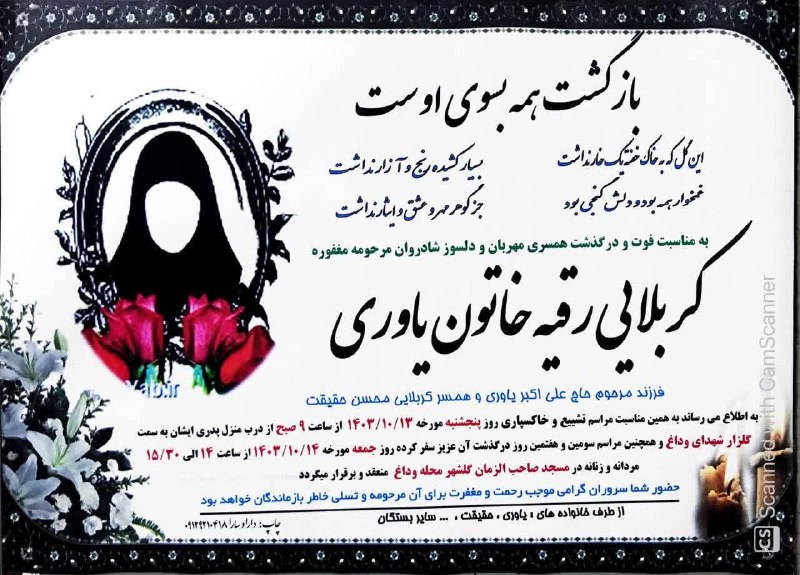 بازگشت همه بسوی اوست
این گل که به خاک خفته یک خار نداشت
بسیار کشیده رنج و آزار نداشت
غمخوار همه بود و دلش گنجی بود
جز گوهر مهر و عشق و ایثار نداشت
به مناسبت فوت و درگذشت همسری مهربان و دلسوز شادروان مرحومه مغفوره
کربلایی رقیه خاتون یاوری
فرزند مرحوم حاج علی اکبر یاوری و همسر کربلایی محسن حقیقت
به اطلاع می رساند به همین مناسبت مراسم تشییع و خاکسپاری روز پنجشنبه مورخه ۱۴۰۳/۱۰/۱۳ از ساعت ۹ صبح از درب منزل پدری ایشان به سمت
گلزار شهدای وداغ و همچنین مراسم سومین و هفتمین روز درگذشت آن عزیز سفر کرده روز جمعه مورخه ۱۴۰۳/۱۰/۱۴ از ساعت ۱۴ الی ۱۵/۳۰
مردانه و زنانه در مسجد صاحب الزمان گلشهر محله وداغ منعقد و برقرار میگردد
حضور شما سروران گرامی موجب رحمت و مغفرت برای آن مرحومه و تسلی خاطر بازماندگان خواهد بود
از طرف خانواده های : یاوری ، حقیقت ، ... سایر بستگان
چاپ: دارا و سارا ۰۹۱۲۹۲۱۰۴۱۸
CS Scanned with CamScanner